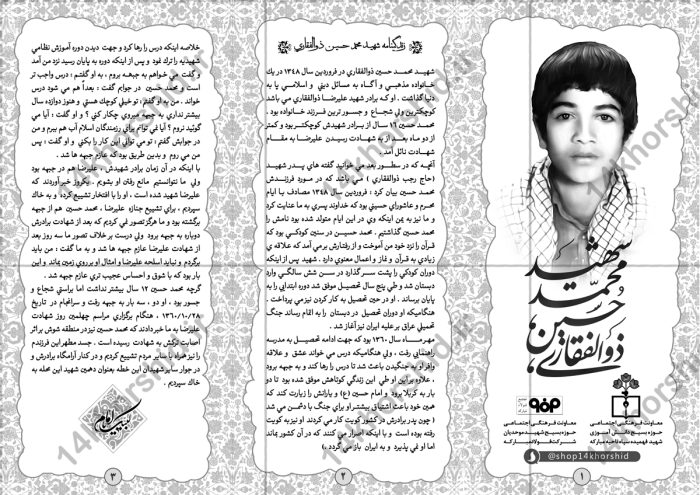 شهید
محمد
حسین
ذوالفقاری
معاونت فرهنگی اجتماعی
حوزه بسیج دانش آموزی
شهید فهمیده سپاه ناحیه مبارکه
معاونت فرهنگی اجتماعی
حوزه بسیج شهید موحدیان
شرکت فولاد مبارکه
@shop14khorshid
۱
زندگینامه شهید محمد حسین ذوالفقاری
شهید محمد حسین ذوالفقاری در فروردین سال ۱۳۴۸ در یك
خانواده مذهبی و آگاه به مسائل دینی و اسلامی پا به
دنیا گذاشت . او که برادر شهید علیرضا ذوالفقاری می باشد
کوچکترین ولی شجاع و جسور ترین فرزند خانواده بود .
محمد حسین ۱۶ سال از برادر شهیدش کوچکتر بود و کمتر
از دو ماه بعد از به شهادت رسیدن علیرضا به مقام
شهادت نائل آمد .
آنچه که در سطور بعد می خوانید گفته های پدر شهید
(حاج رجب ذوالفقاری ) می باشد که در مورد فرزندش
محمد حسین بیان کرد : فروردین سال ۱۳۴۸ مصادف با ایام
محرم و عاشورای حسینی بود که خداوند پسری به ما عنایت کرد
و ما نیز به یمن اینکه وی در این ایام متولد شده بود نامش را
محمد حسین گذاشتیم . محمد حسین در سنین کودکی بود که
قرآن را نزد خود می آموخت و از رفتارش برمی آمد که علاقه ی
زیادی به قرآن و نماز و اعمال معنوی دارد . شهید پس از اینکه
دوران کودکی را پشت سر گذارد در سن شش سالگی وارد
دبستان شد و طی پنج سال تحصیل موفق شد دوره ابتدایی را به
پایان برساند . او در حین تحصیل به کار کردن نیز می پرداخت .
هنگامیکه او دوران تحصیل در دبستان را به اتمام رساند جنگ
تحمیلی عراق بر علیه ایران نیز آغاز شد .
مهرماه سال ۱۳۶۰ بود که جهت ادامه تحصیل به مدرسه
راهنمایی رفت ، ولی هنگامیکه درس می خواند عشق و علاقه
وافر او به جنگیدن باعث شد تا درس را رها کند و به جبهه برود
. علاوه براین او طی این زندگی کوتاهش موفق شده بود تا دو
بار به کربلا برود و امام حسین (ع) و یارانش را زیارت کند که
همین خود باعث اشتیاق بیشتر او برای جنگ با دشمن می شد
( چون پدر برادرش در کشور کویت کار می کردند او نیز به کویت
رفته بوده است و با اینکه اصرار می کنند که در آن کشور بماند
اما او نمی پذیرد و به ایران باز می گردد .)
۲
خلاصه اینکه درس را رها کرد و جهت دیدن دوره آموزش نظامی
شهیدیه را ترك نمود و پس از اینکه دوره به پایان رسید نزد من آمد
و گفت می خواهم به جبهه بروم ، به او گفتم : درس واجب تر
است و محمد حسین در جوابم گفت : بعداً هم می شود درس
خواند . من به او گفتم : تو خیلی کوچك هستی و هنوز دوازده سال
بیشتر نداری به جبهه میروی چکار کنی ؟ و او گفت : آیا می
گوئید نروم ؟ آیا نمی توانم برای رزمندگان اسلام آب هم ببرم و من
در جوابش گفتم : تو می توانی این کار را بکنی و او گفت : پس
من می روم و بدین طریق بود که عازم جبهه ها شد .
با اینکه در آن زمان برادر شهیدش ، علیرضا هم در جبهه بود
ولی ما نتوانستیم مانع رفتن او بشویم . یکروز خبرآوردند که
علیرضا شهید شده است ، او را با افتخار تشییع کرده و به خاك
سپردیم ، برای تشییع جنازه علیرضا ، محمد حسین هم از جبهه
برگشته بود و ما هرگز تصور نمی کردیم که بعد از شهادت برادرش
دوباره به جبهه برود ولی درست بر خلاف تصور ما سه روز بعد
از شهادت علیرضا عازم جبهه ها شد و به ما گفت : من باید
برگردم و نباید اسلحه علیرضا و امثال او بر روی زمین بماند و این
بار بود که با شوق و احساس عجیب تری عازم جبهه شد .
گرچه محمد حسین ۱۲ سال بیشتر نداشت اما براستی شجاع و
جسور بود . او دو ، سه بار به جبهه رفت و سرانجام در تاریخ
۱۳۶۰/۱۰/۲۸ ، هنگام برگزاری مراسم چهلمین روز شهادت
علیرضا به ما خبر دادند که محمد حسین نیز در منطقه شوش بر اثر
اصابت ترکش به شهادت رسیده است . جسد مطهر این فرزندم
را نیز همراه با سایر مردم تشییع کردیم و در کنار آرامگاه برادرش و
در جوار سایر شهیدان این خطه بعنوان دهمین شهید این محله به
خاك سپردیم .
۳
14khorshid.ir